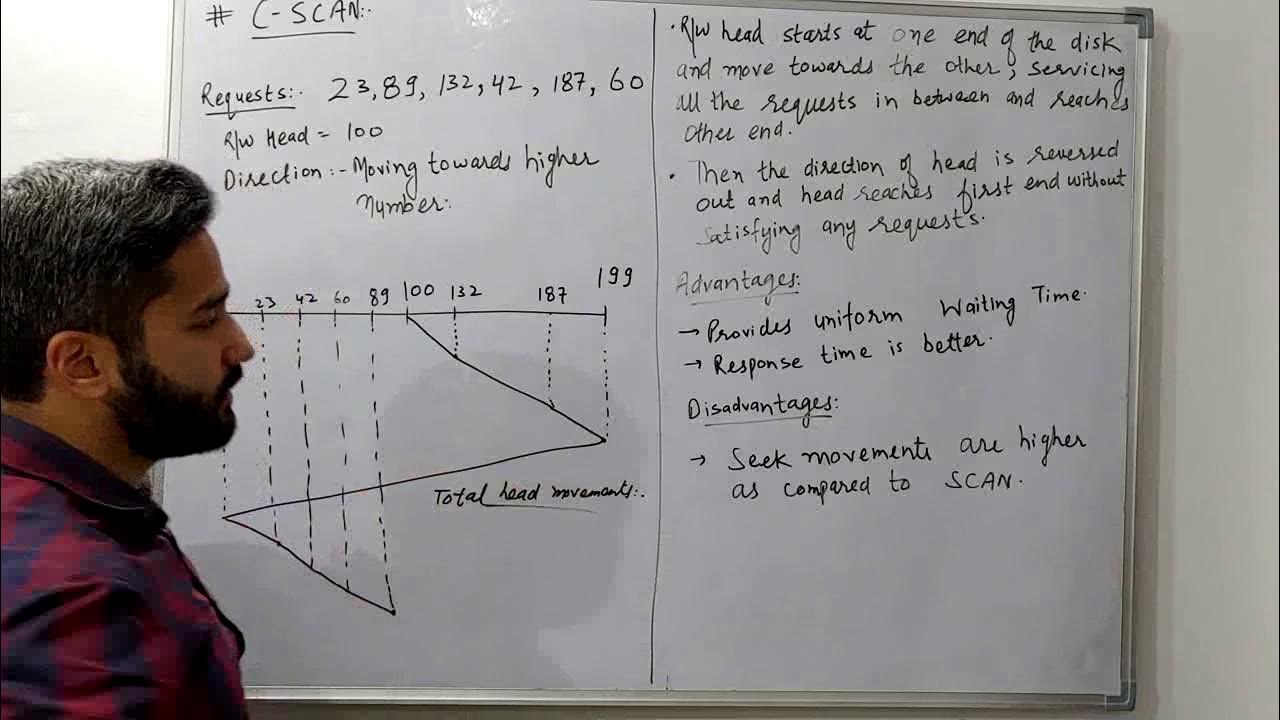 # C-SCAN:.
Requests:. 23, 89, 132, 42, 187, 60
R/w Head = 100
Direction :- Moving towards higher
number:.
23 42 60 89 100 132 187 199
Total head movements:.
· R/w head starts at one end of the disk
and move towards the other, servicing
all the requests in between and reaches
other end.
· Then the direction of head is reversed
out and head reaches first end without
satisfying any requests.
Advantages:
→ Provides uniform Waiting Time.
→ Response time is better.
Disadvantages:
→ Seek movements are higher
as compared to SCAN.